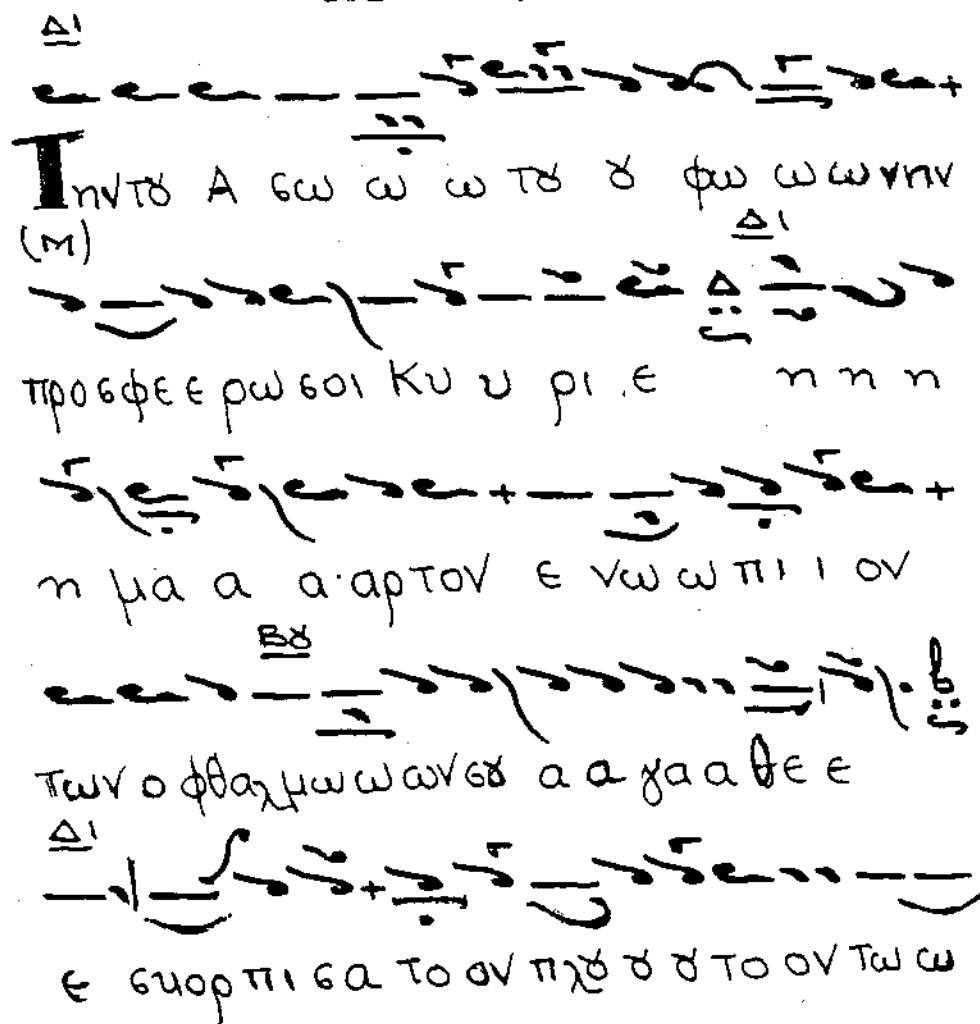 Δι
Τηντȣ Α σω ω ω τȣ ȣ φω ω ω νην
(Μ)
Δι
προσφε ε ρω σοι Κυ υ ρι ε η η η
η μα α α αρτον ε νω ω πι ι ον
Βȣ
των ο φθαλμω ω ων σȣ α α γα α θε ε
Δι
ε σκορ πι σα το ον πλȣ ȣ ȣ το ον τω ω